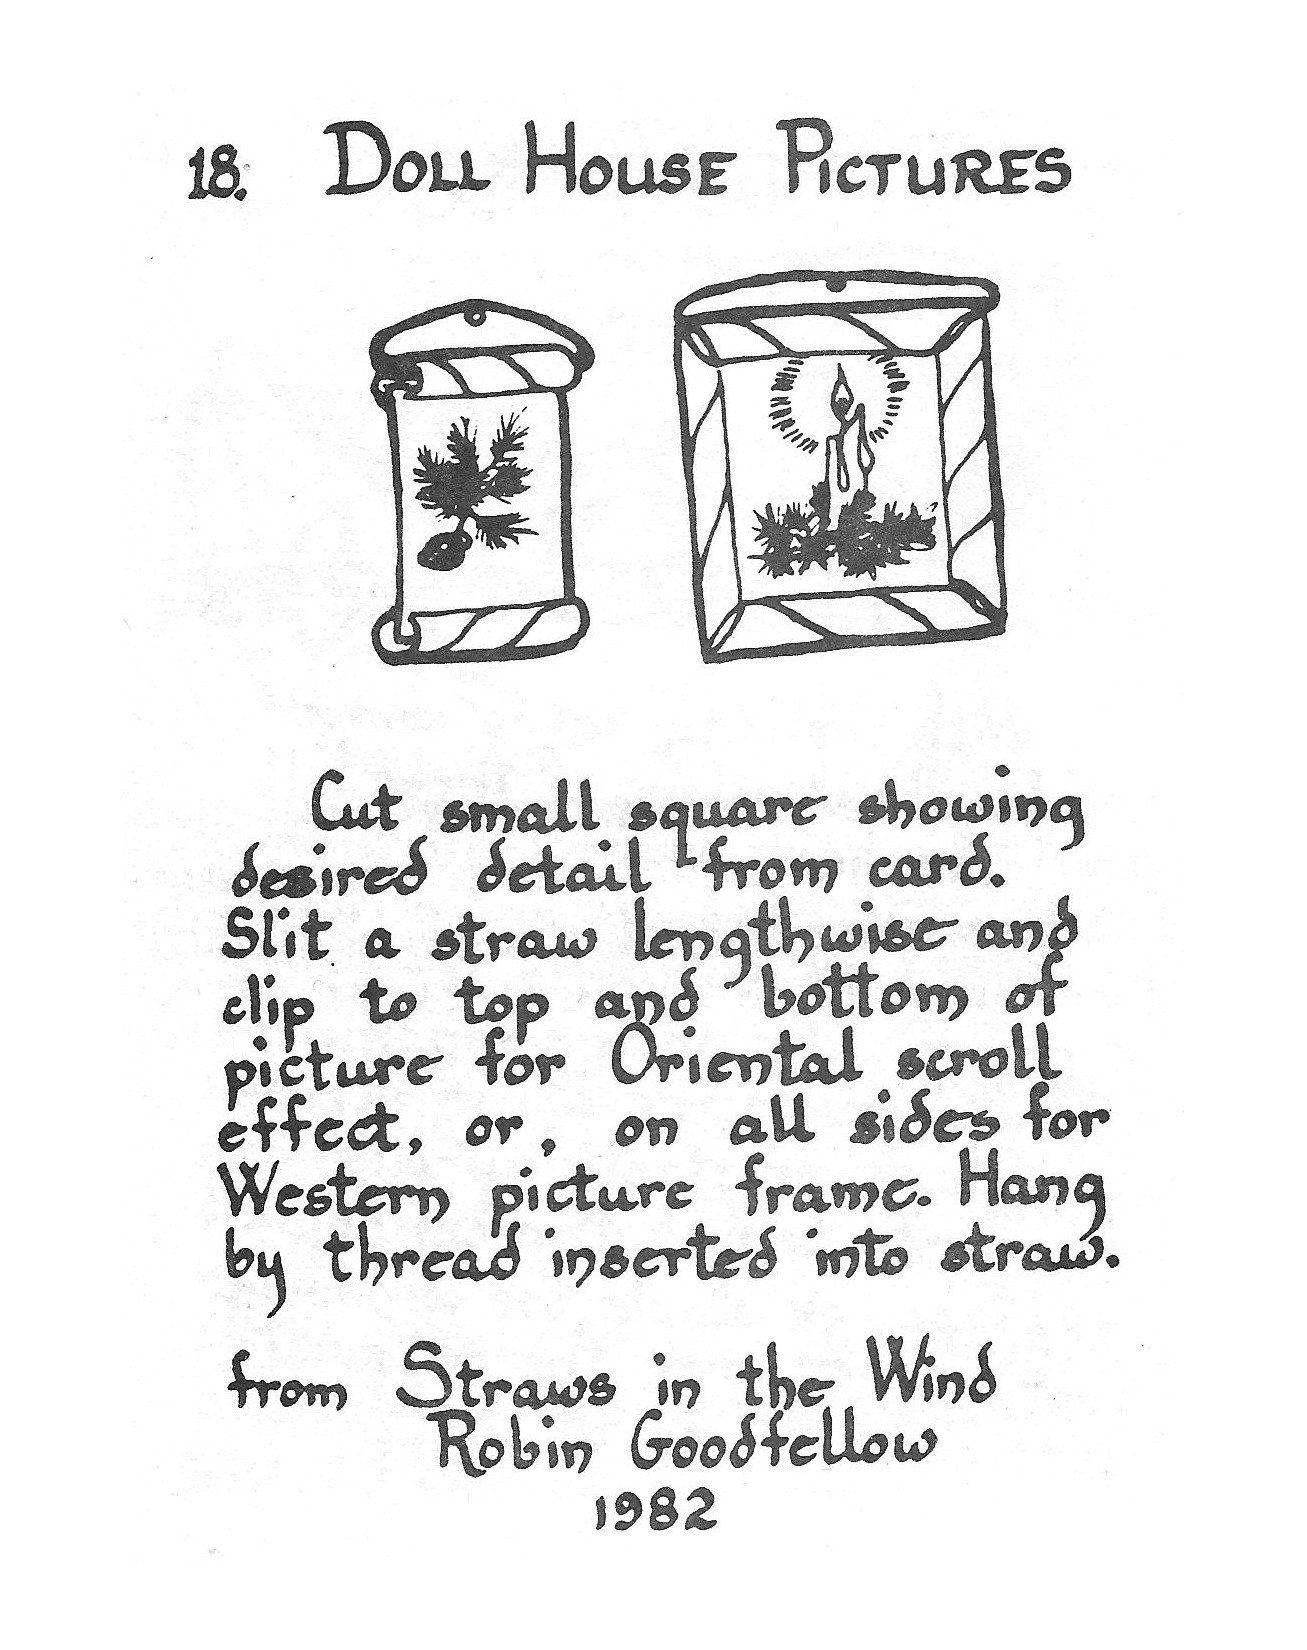 18. DOLL HOUSE PICTURES
Cut small square showing
desired detail from card.
Slit a straw lengthwise and
clip to top and bottom of
picture for Oriental scroll
effect, or, on all sides for
Western picture frame. Hang
by thread inserted into straw.
from Straws in the Wind
Robin Goodfellow
1982